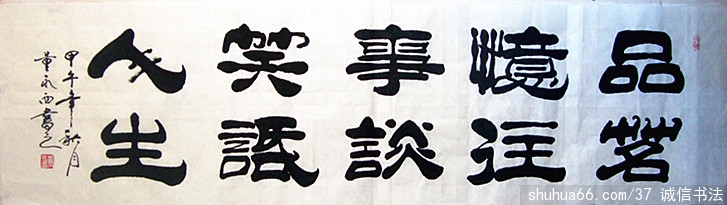 品茗
憶往
事談
笑話
人生
甲午年秋月
董永西書之
shuhua66.com/37 诚信书法